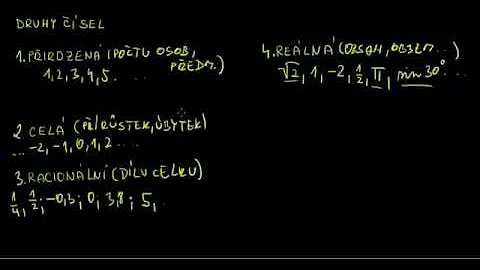 DRUHY ČÍSEL
1. PŘIROZENÁ (POČTU OSOB, PŘEDM.)
1, 2, 3, 4, 5. . . .
2. CELÁ (PŘÍRŮSTEK, ÚBYTEK)
... -2, -1, 0, 1, 2 . . . .
3. RACIONÁLNÍ (DÍLU CELKU)
1/4, 1/2; -0,3; 0, 3,8; 5, .
4. REÁLNÁ (OBSAH, OBJEM...)
√2, 1, -2, 1/2, π, sin 30° ...